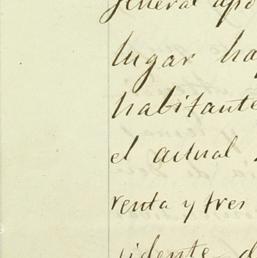 general apo
lugar ha
habitante
el actual
renta y tres
sidente d